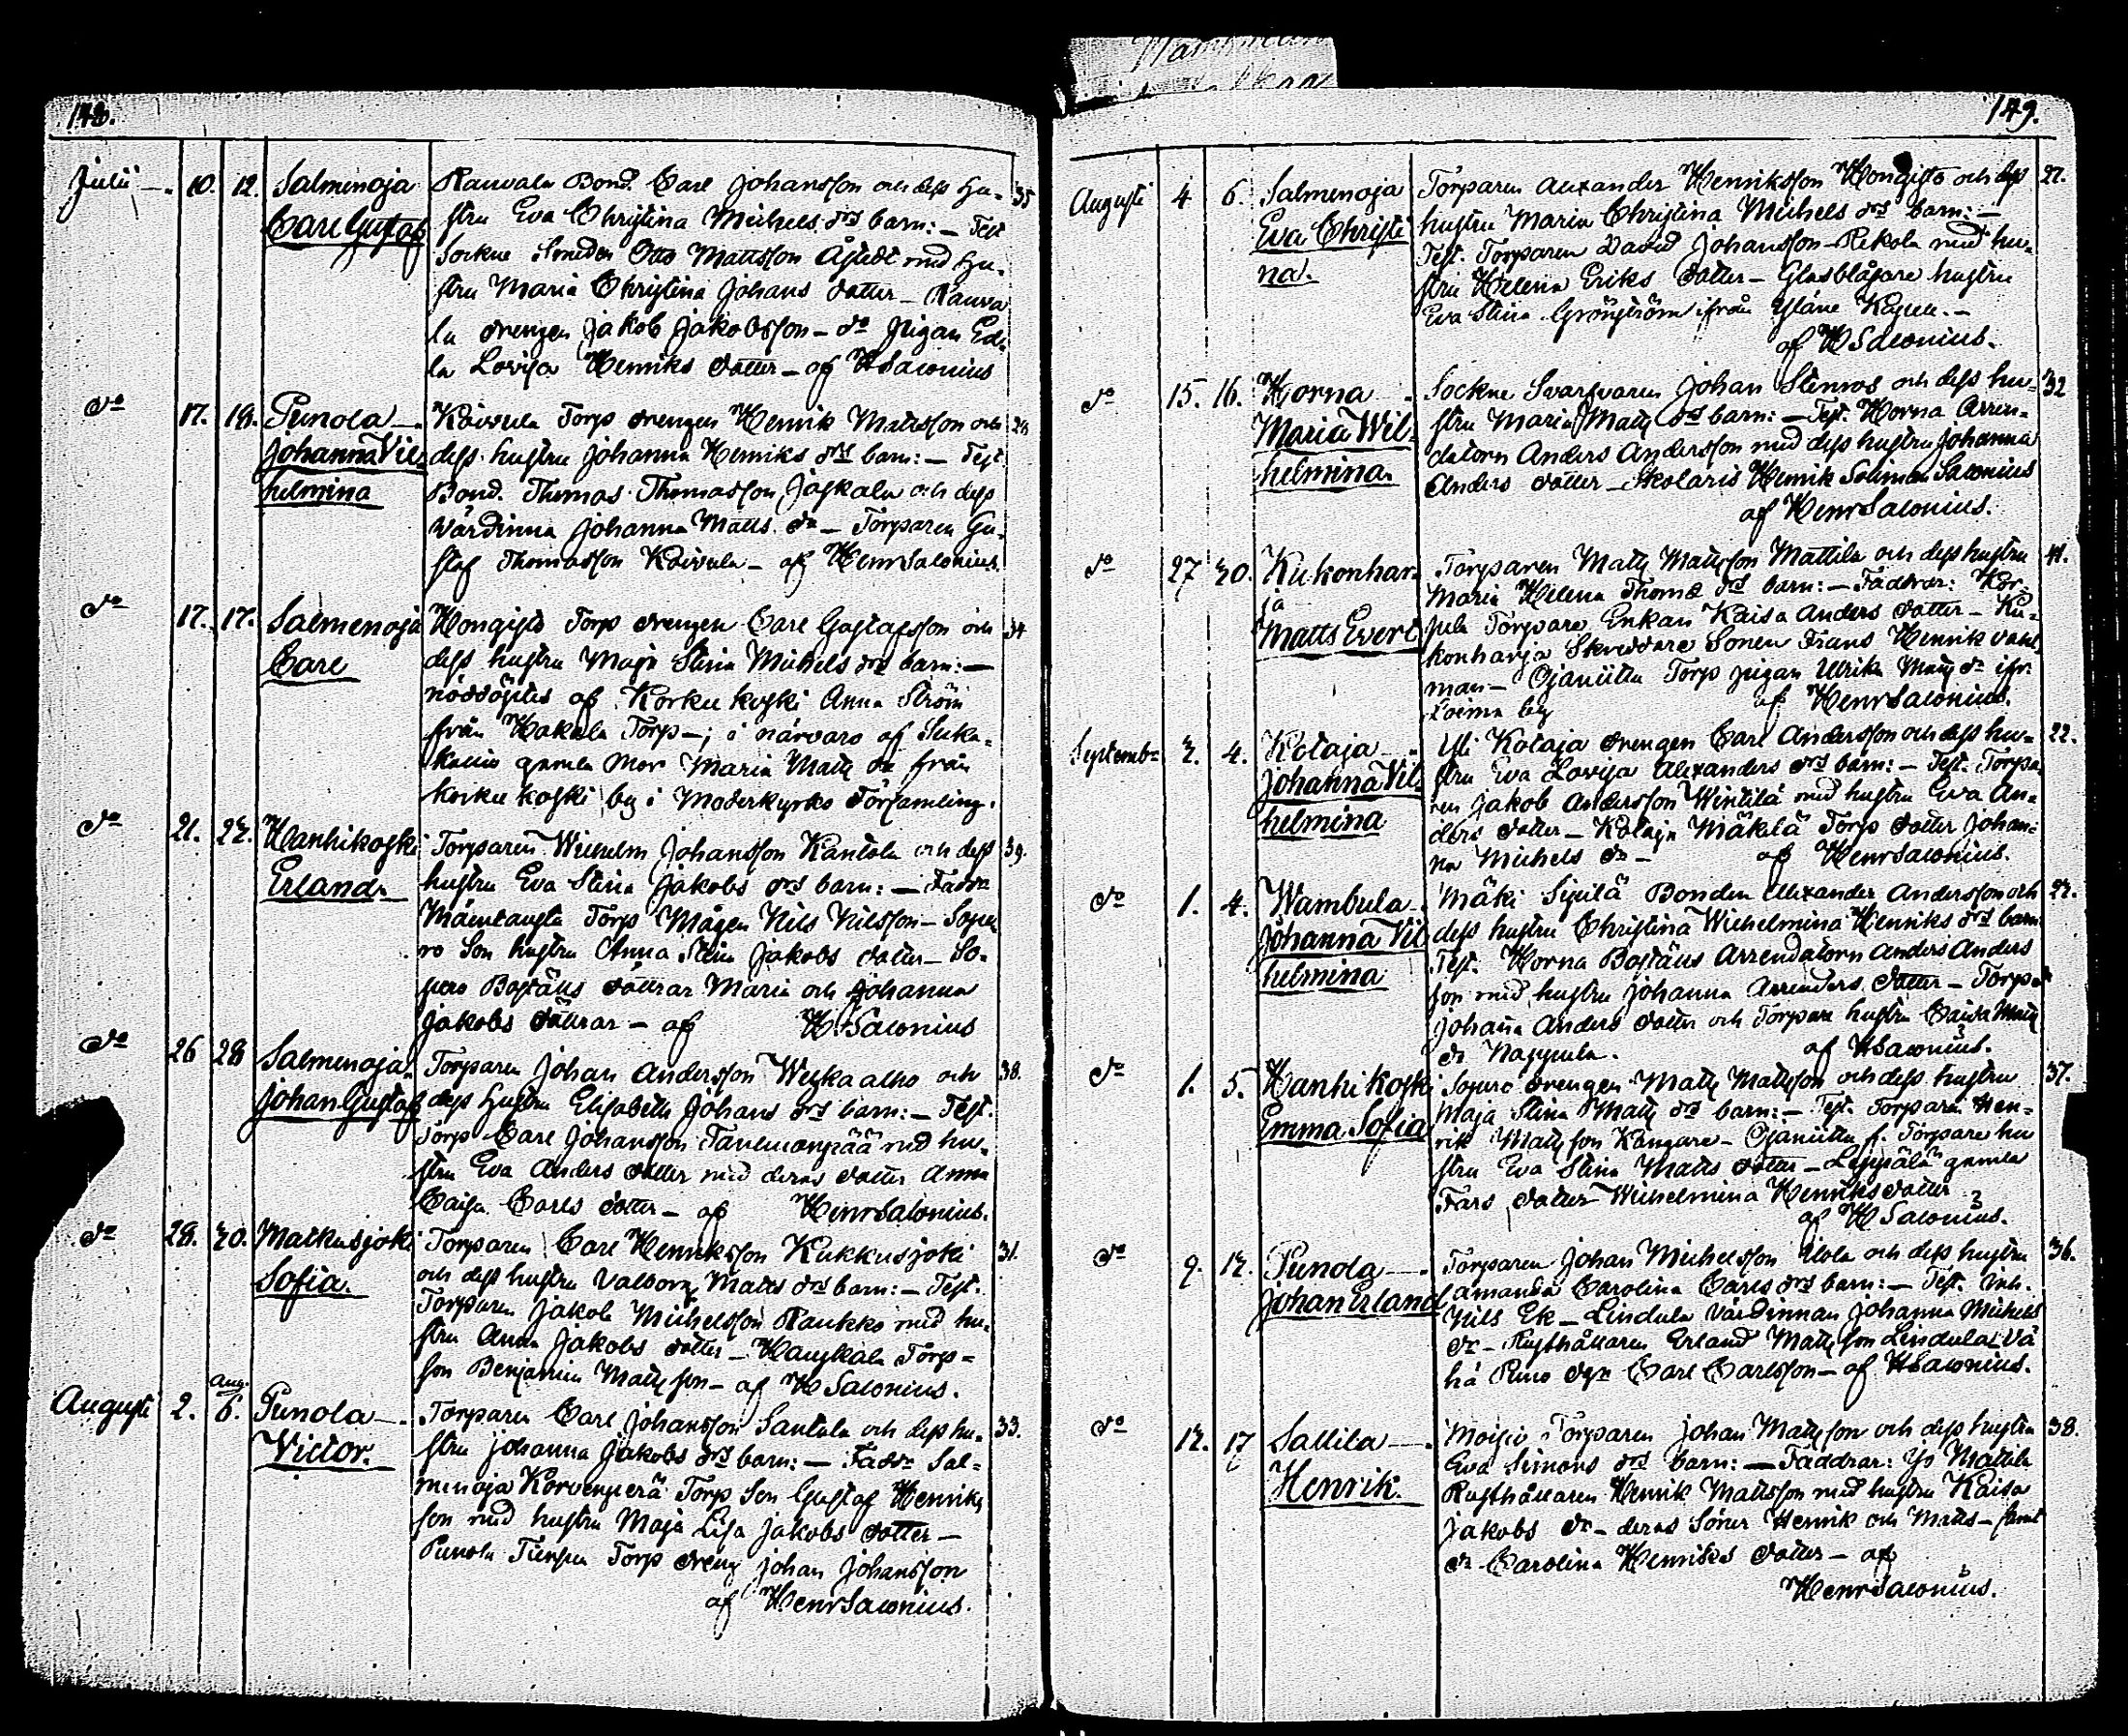 148.
Julii — 10. 12. Salmenoja Rauvala Bond. Carl Johansson och dess hu- 35
Carl Gustaf stru Eva Christina Michels drs barn: — Test.
Sockne Smeden Otto Mattsson Åstedt med hu-
stru Maria Christina Johans dotter — Rauva
la drengen Jakob Jakobsson — do Pigan Ed-
la Lovisa Henriks dotter — af HSalonius
do 17. 19. Punola — Koivula Torp drengen Henrik Mattsson och 28
Johanna Vil- dess hustru Johanna Henriks drs barn: — Test
helmina Bond. Thomas Thomasson Jaskala och dess
Värdinna Johanna Matts dr — Torparen Gu-
staf Thomasson Koivula — af HenrSalonius.
do 17. 17. Salmenoja Hongisto Torp drengen Carl Gustafsson och 34
Carl dess hustru Maja Stina Michels drs barn: —
nöddöptes af Korkeekoski Anna Ström
från Hakala Torp —; i närvaro af Suka-
gamla Mor Maria Matts dr från
Korkeekoski by i Moderkyrko Församling.
do 21. 22. Hanhikoski Torparen Wilhelm Johansson Kantola och dess 39.
Erland hustru Eva Stina Jakobs drs barn: — Faddr
Torp Mågen Nils Nilsson — Sopu
ro Son hustru Anna Stina Jakobs dotter — So-
puro Boställs döttrar Maria och Johanna
Jakobs döttrar — af HSalonius
do 26 28 Salmenoja Torparen Johan Andersson Weskaalho och 38.
Johan Gustaf dess hustru Elisabeth Johans drs barn: — Test.
Torp Carl Johansson med hu-
stru Eva Anders dotter med deras dotter Anna
Caisa Carls dotter — af HenrSalonius.
do 28. 30. Matkusjoki Torparen Carl Henriksson Kukkusjoki 31.
Sofia. och dess hustru Valborg Matts drs barn: — Test.
Torparen Jakob Michelsson Raukko med hu-
stru Anna Jakobs dotter — Torp-
son Benjamin Mattsson — af HSalonius.
Augusti 2. Aug. 6. Punola — Torparen Carl Johansson Santala och dess hu- 33.
Victor. stru Johanna Jakobs drs barn: — Faddr Sal-
menoja Korvenperä Torp Son Gustaf Henriks
son med hustru Maja Lisa Jakobs dotter —
Punola Torp dreng Johan Johansson
af HenrSalonius.
149.
Augusti 4 6. Salmenoja Torparen Alexander Henriksson Hongisto och dess 27.
Eva Christi hustru Maria Christina Michels drs barn: —
na. Test. Torparen David Johansson Rekola med hu-
stru Helena Eriks dotter — Glasblåsare hustru
Eva Stina Grönström ifrån Yläne Kapell. —
af HSalonius.
do 15. 16. Horna — Sockne Svarfvaren Johan Stenroos och dess hu- 32
Maria Wil- stru Maria Matts drs barn: — Test. Horna Arren-
helmina. datorn Anders Andersson med dess hustru Johanna
Anders dotter — Skolaris Henrik Salonius
af HenrSalonius.
do 27 30. Kukonhar- Torparen Matts Mattsson Mattila och dess hustru 41.
ja Maria Helena Thomæ drs barn: — Faddrar:
Matts Evert Torpare Enkan Kaisa Anders dotter — Ku-
konharja Skreddare Sonen Frans Henrik
man — Ojaniittu Torp pigan Ulrika Matts dr ifr:
Loima by af HenrSalonius.
Septemb: 2. 4. Kotaja — Yli Kotaja drengen Carl Andersson och dess hu- 22.
Johanna Vil- stru Eva Lovisa Alexanders drs barn: — Test. Torpa-
helmina ren Jakob Andersson Wintilä med hustru Eva An-
ders dotter — Kotaja Mäkelä Torp dotter Johan-
na Michels dr — af HenrSalonius.
do 1. 4. Wambula. Mäki Sipilä Bonden Alexander Andersson och 22.
Johanna Vil dess hustru Christina Wilhelmina Henriks drs barn
helmina Test. Horna Boställs Arrendatorn Anders Anders
son med hustru Johanna dotter — Torp
Johanna Anders dotter och Torpare hustru Caisa Matts
dr af HSalonius.
do 1. 5. Hanhikoski Sopuro drengen Matts Mattsson och dess hustru 37.
Emma Sofia Maja Stina Matts drs barn: — Test. Torparen Hen-
rik Mattsson Kangare — Ojaniittu f. Torpare hu
stru Eva Stina Matts dotter — Leppälä gamla
Fars dotter Wilhelmina Henriks dotter
af HSalonius.
do 9. 12. Punola — Torparen Johan Michelsson Uola och dess hustru 36.
Johan Erland Amanda Carolina Carls drs barn: — Test. Inh.
Nils Ek — Lindula Värdinnan Johanna Michels
dr — Rusthållaren Erland Mattsson Lindula — Vä
hä Carl Carlsson — af HSalonius.
do 12. 17 Sallila — Moisio Torparen Johan Mattsson och dess hustru 38.
Henrik. Eva Simons drs barn: — Faddrar: Yso Mattila
Rusthållaren Henrik Mattsson med hustru Kaisa
Jakobs dr — deras Söner Henrik och Matts — samt
dr Carolina Henriks dotter — af
HenrSalonius.